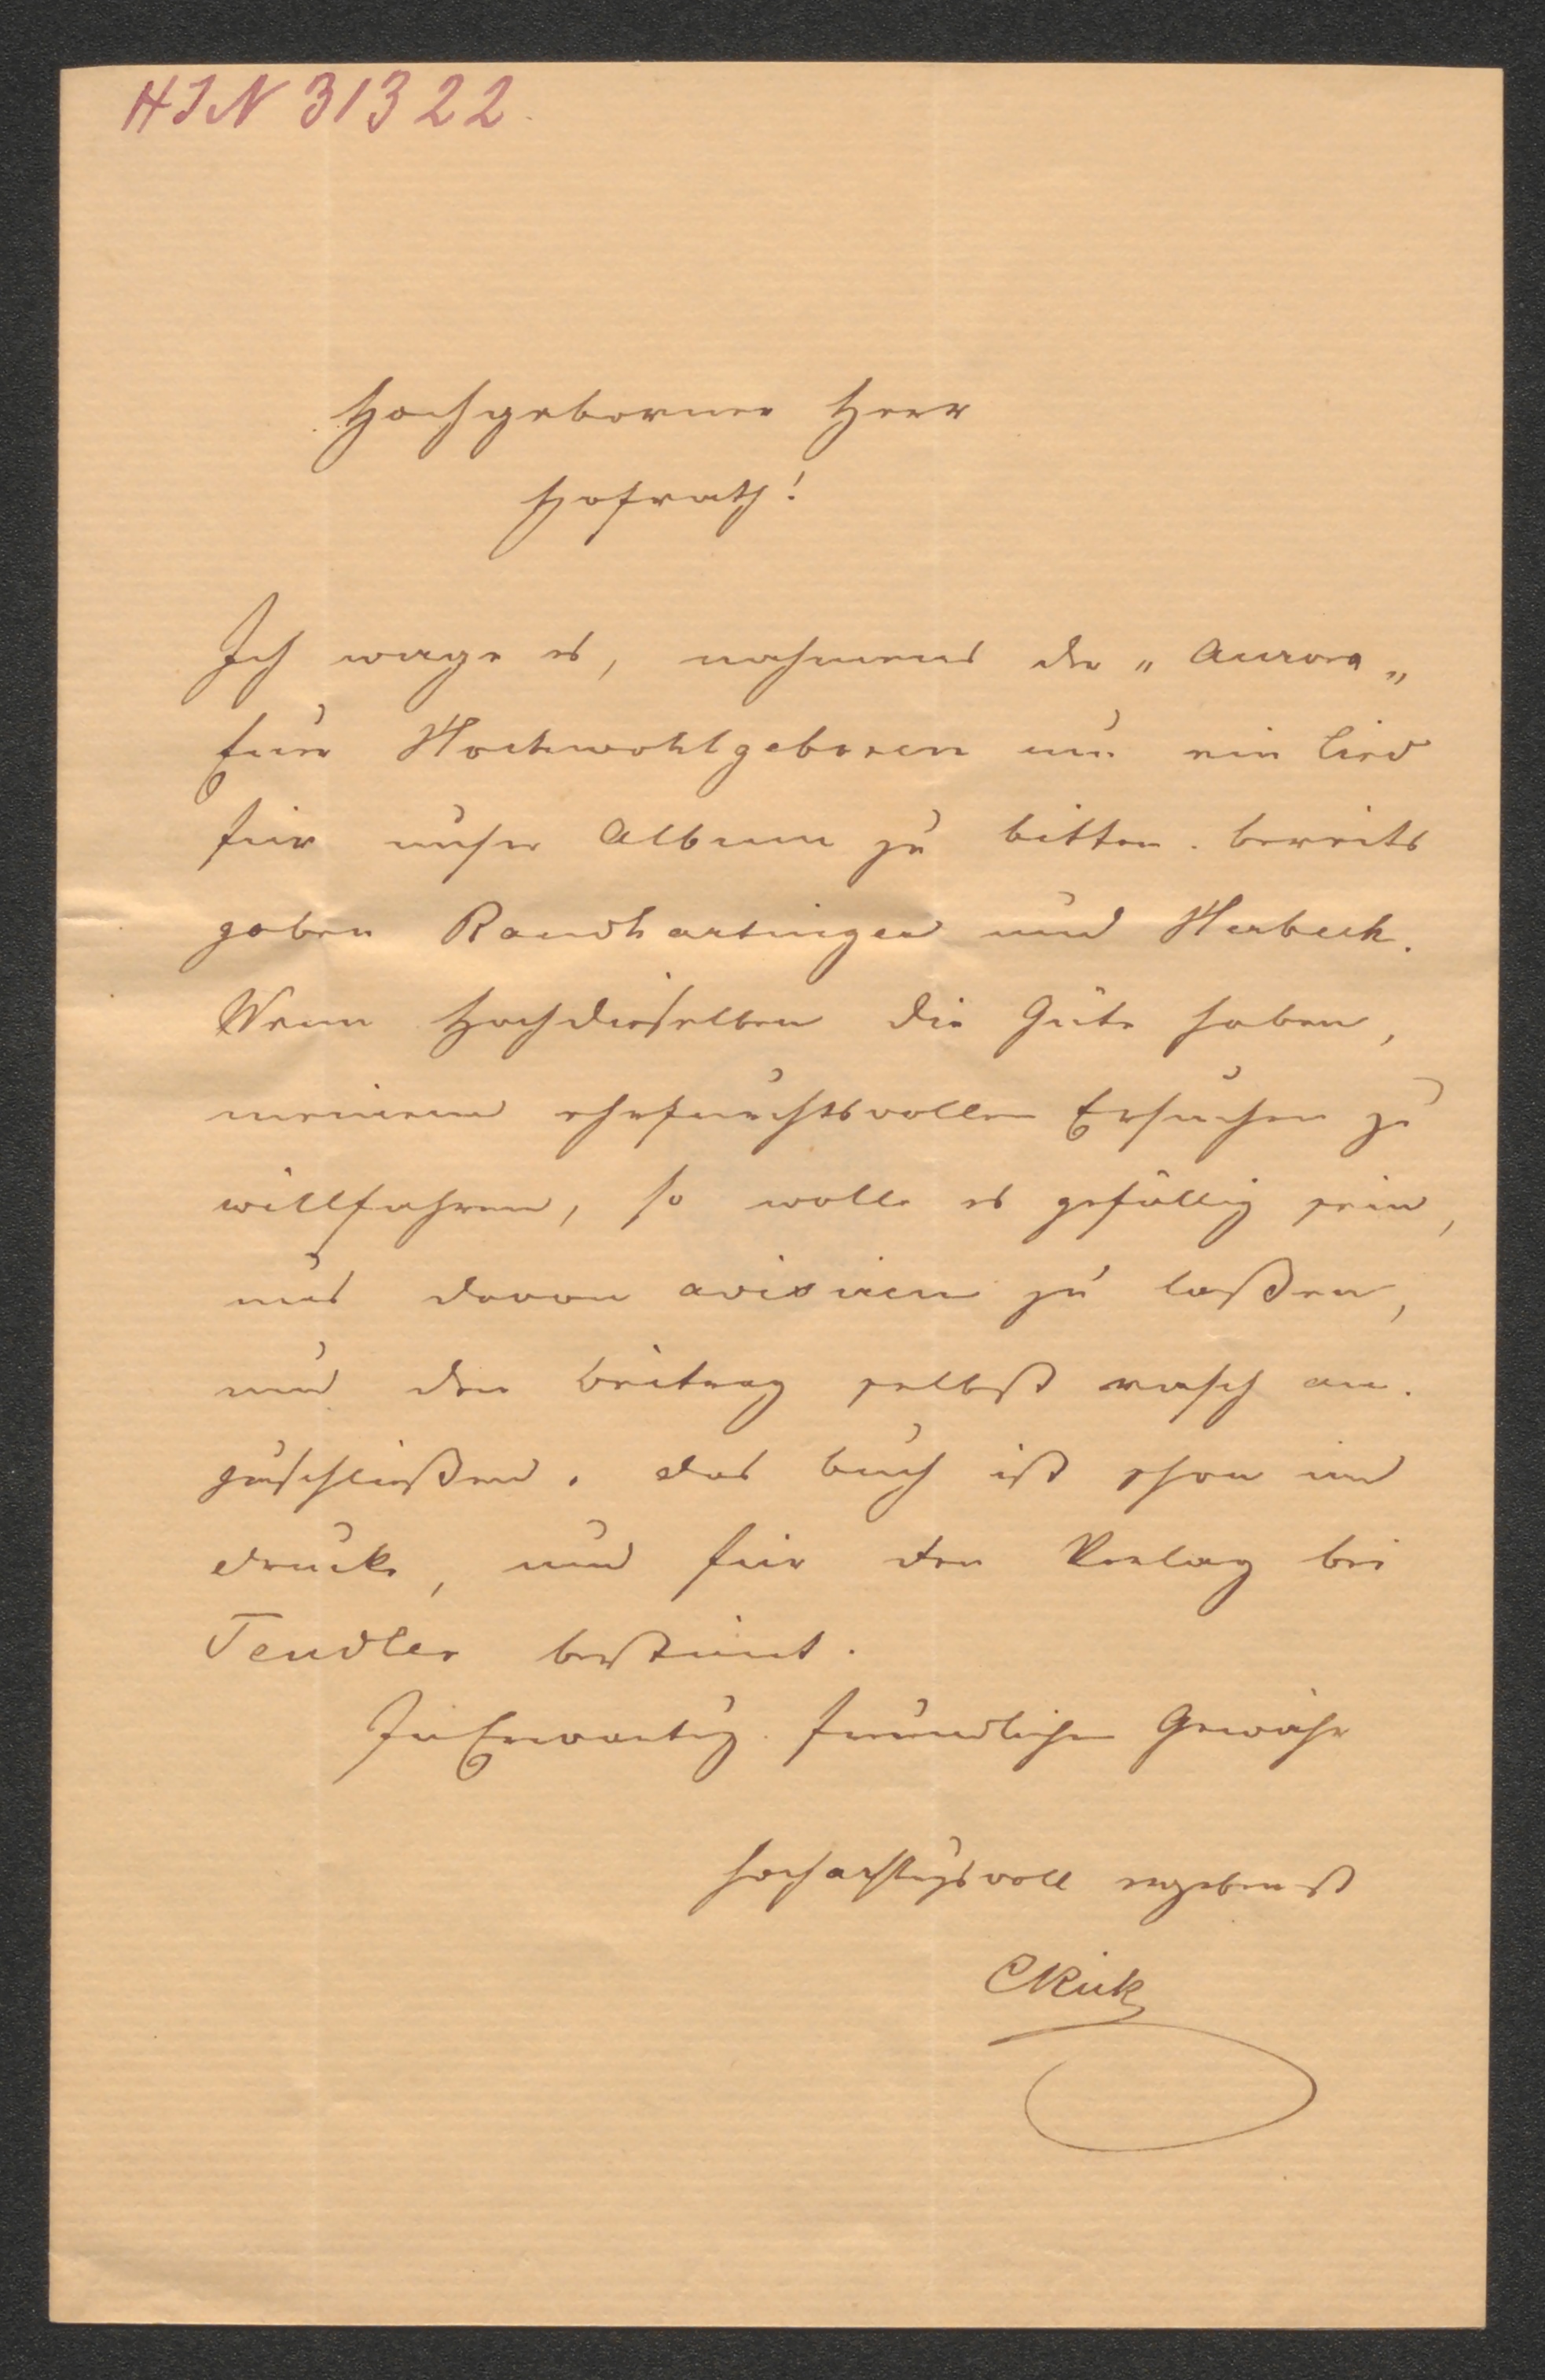 HIN 31322.
Hochgeborner Herr
Hofrath!
Ich wage es, nahmens der „Aurora„
Euer Hochwohlgeboren um ein Lied
für unser Album zu bitten. bereits
gaben Randhartinger und Herbeck.
Wenn Hochdieselben die Güte haben,
meinem ehrfurchtsvollen Ersuchen zu
willfahren, so wolle es gefällig sein,
uns davon avisiren zu laßen,
und den Beitrag selbst rasch an-
zuschließen. das Buch ist schon im
drucke, und für den Verlag bei
Tendler bestimt.
In Erwartung freundlicher Gewähr
hochachtungsvoll ergebenst